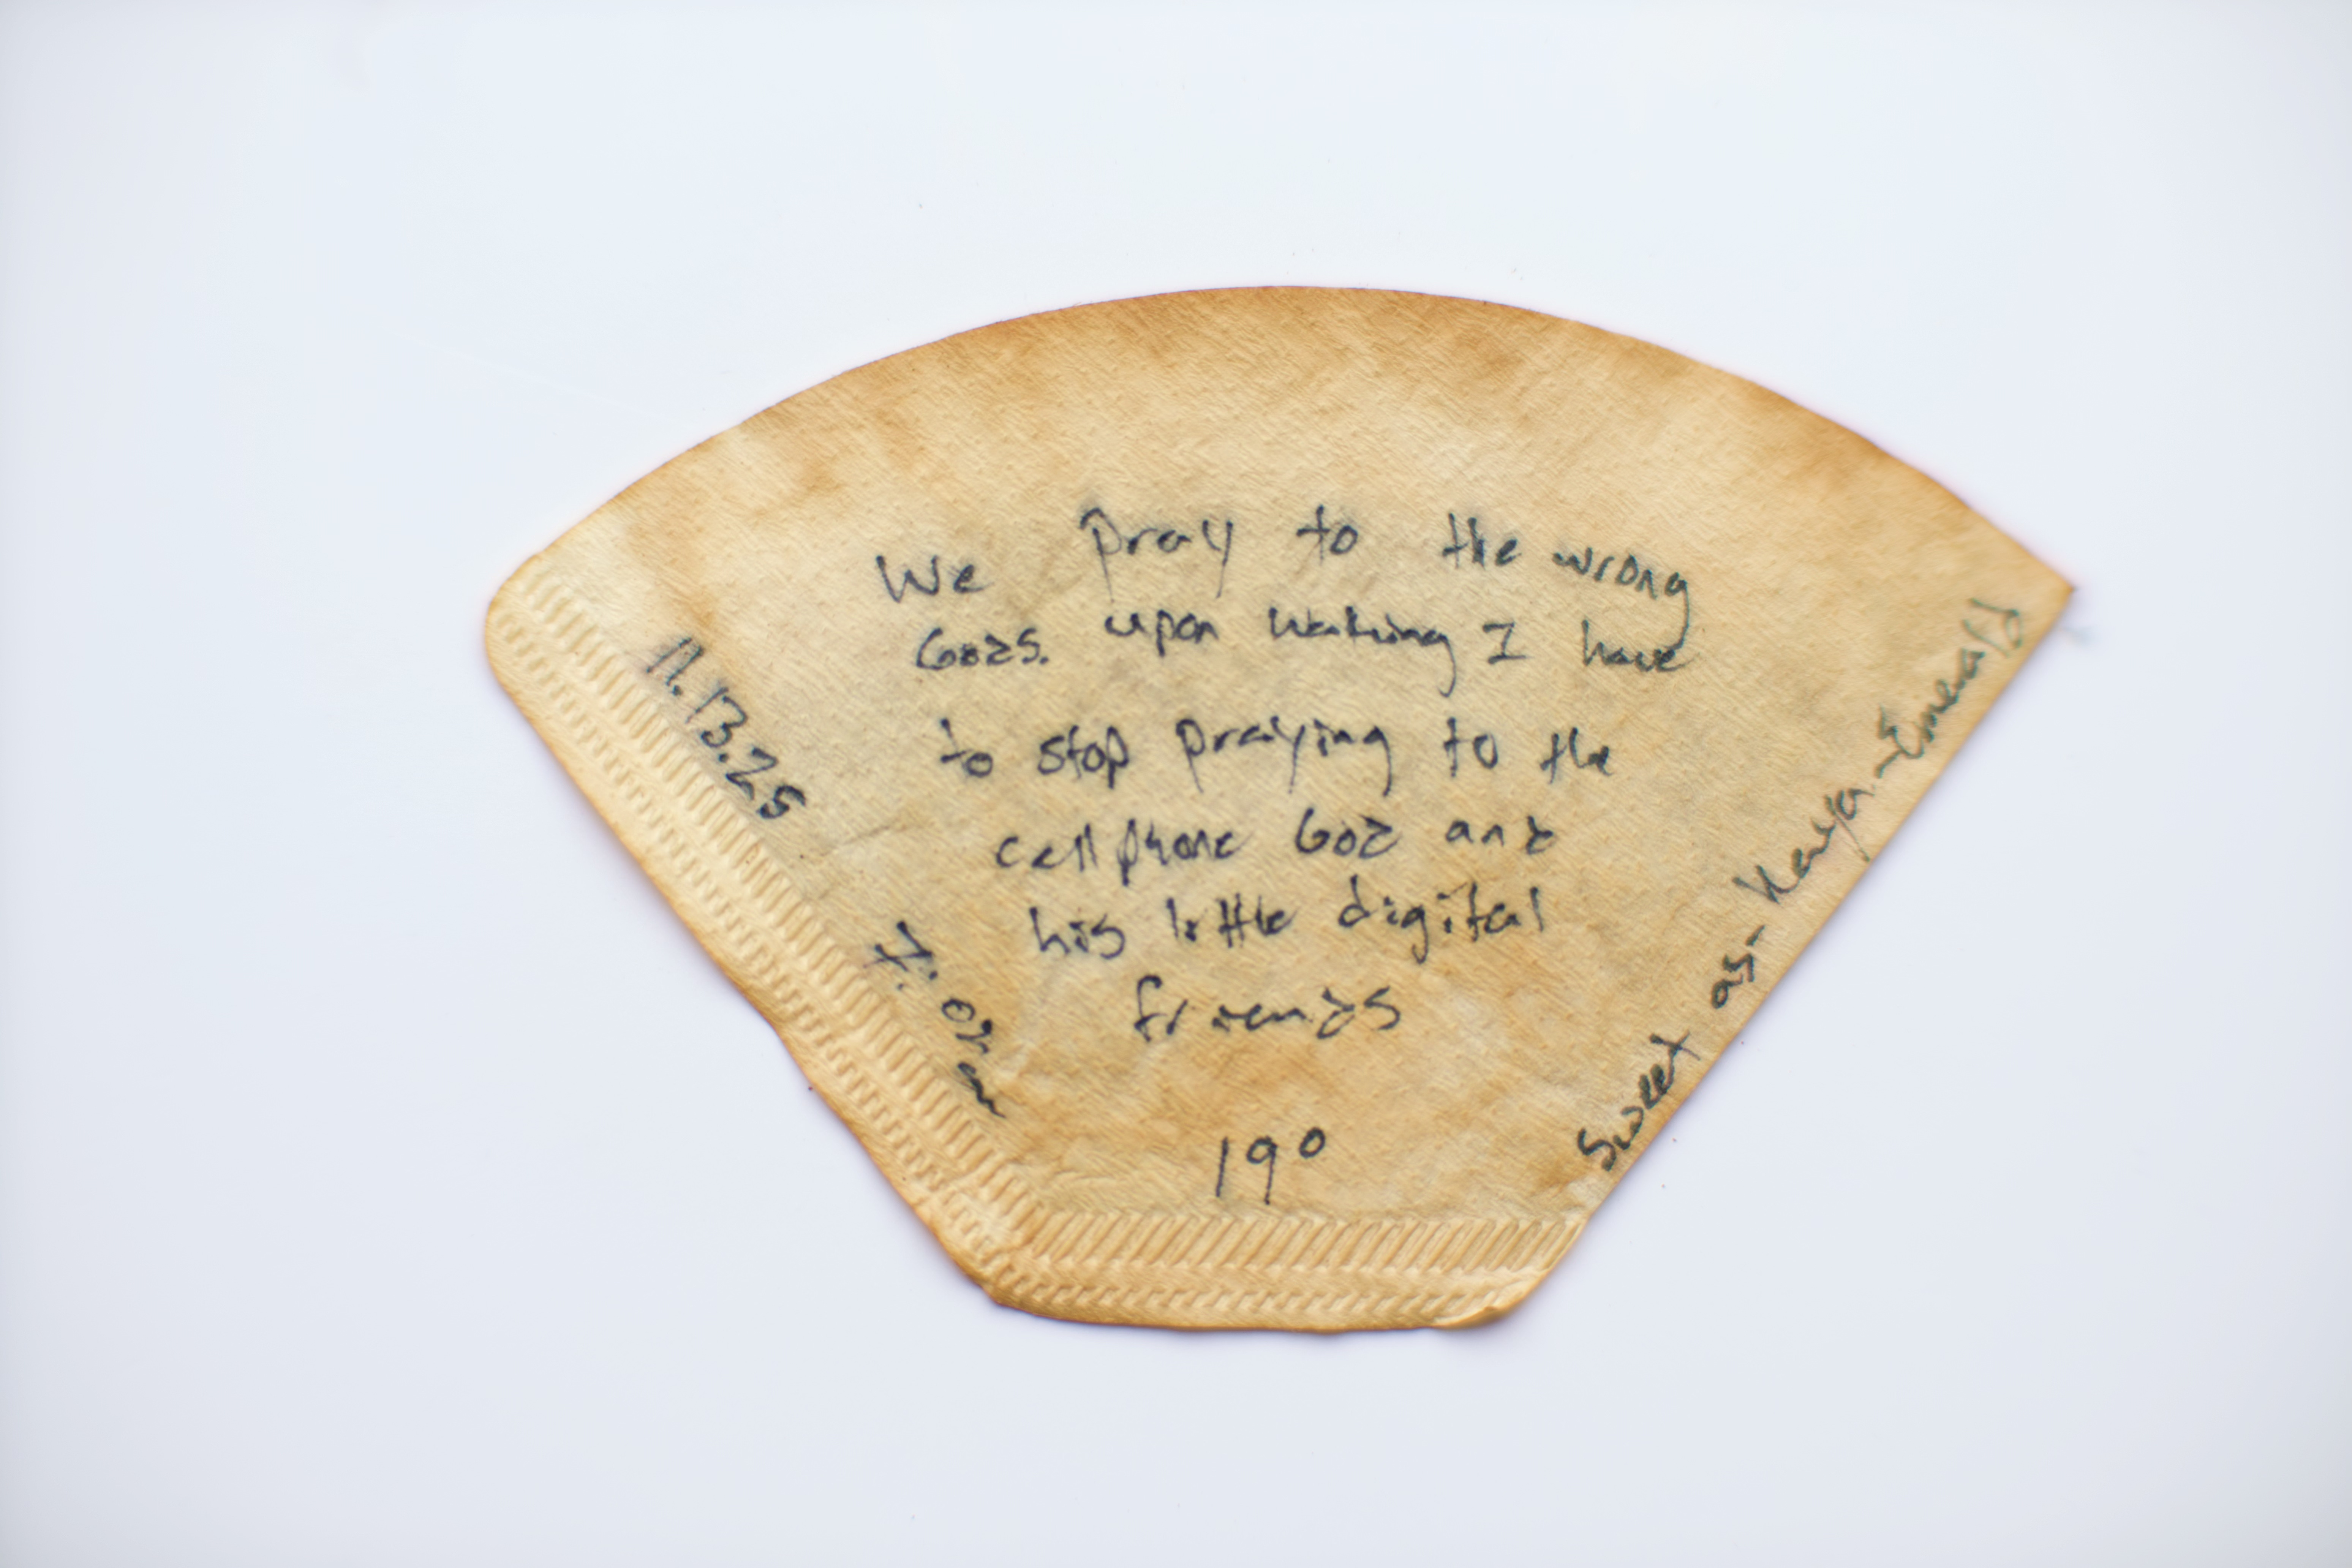 We pray to the wrong
Gods. upon waking I have
to stop praying to the
cell phone God and
his little digital
friends
19°
11.13.25
7:02 am
Sweet as - Kenya - Emerald